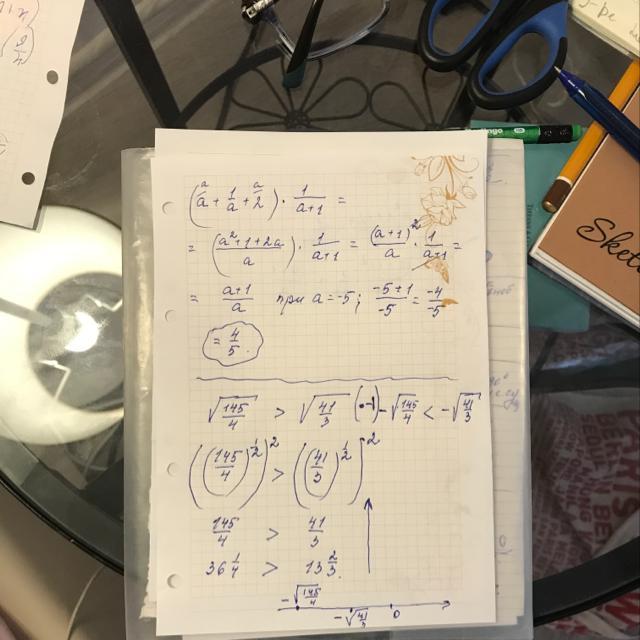 (a + 1/a + 2) · 1/(a+1) =
= ((a²+1+2a)/a) · 1/(a+1) = (a+1)²/a · 1/(a+1) =
= (a+1)/a при a = -5; (-5+1)/-5 = -4/-5
= 4/5.
√(145/4) > √(41/3) (·-1) -√(145/4) < -√(41/3)
((145/4)^(1/2))² > ((41/3)^(1/2))²
145/4 > 41/3
36 1/4 > 13 2/3.
-√(145/4)
-√(41/3) 0
Sketc